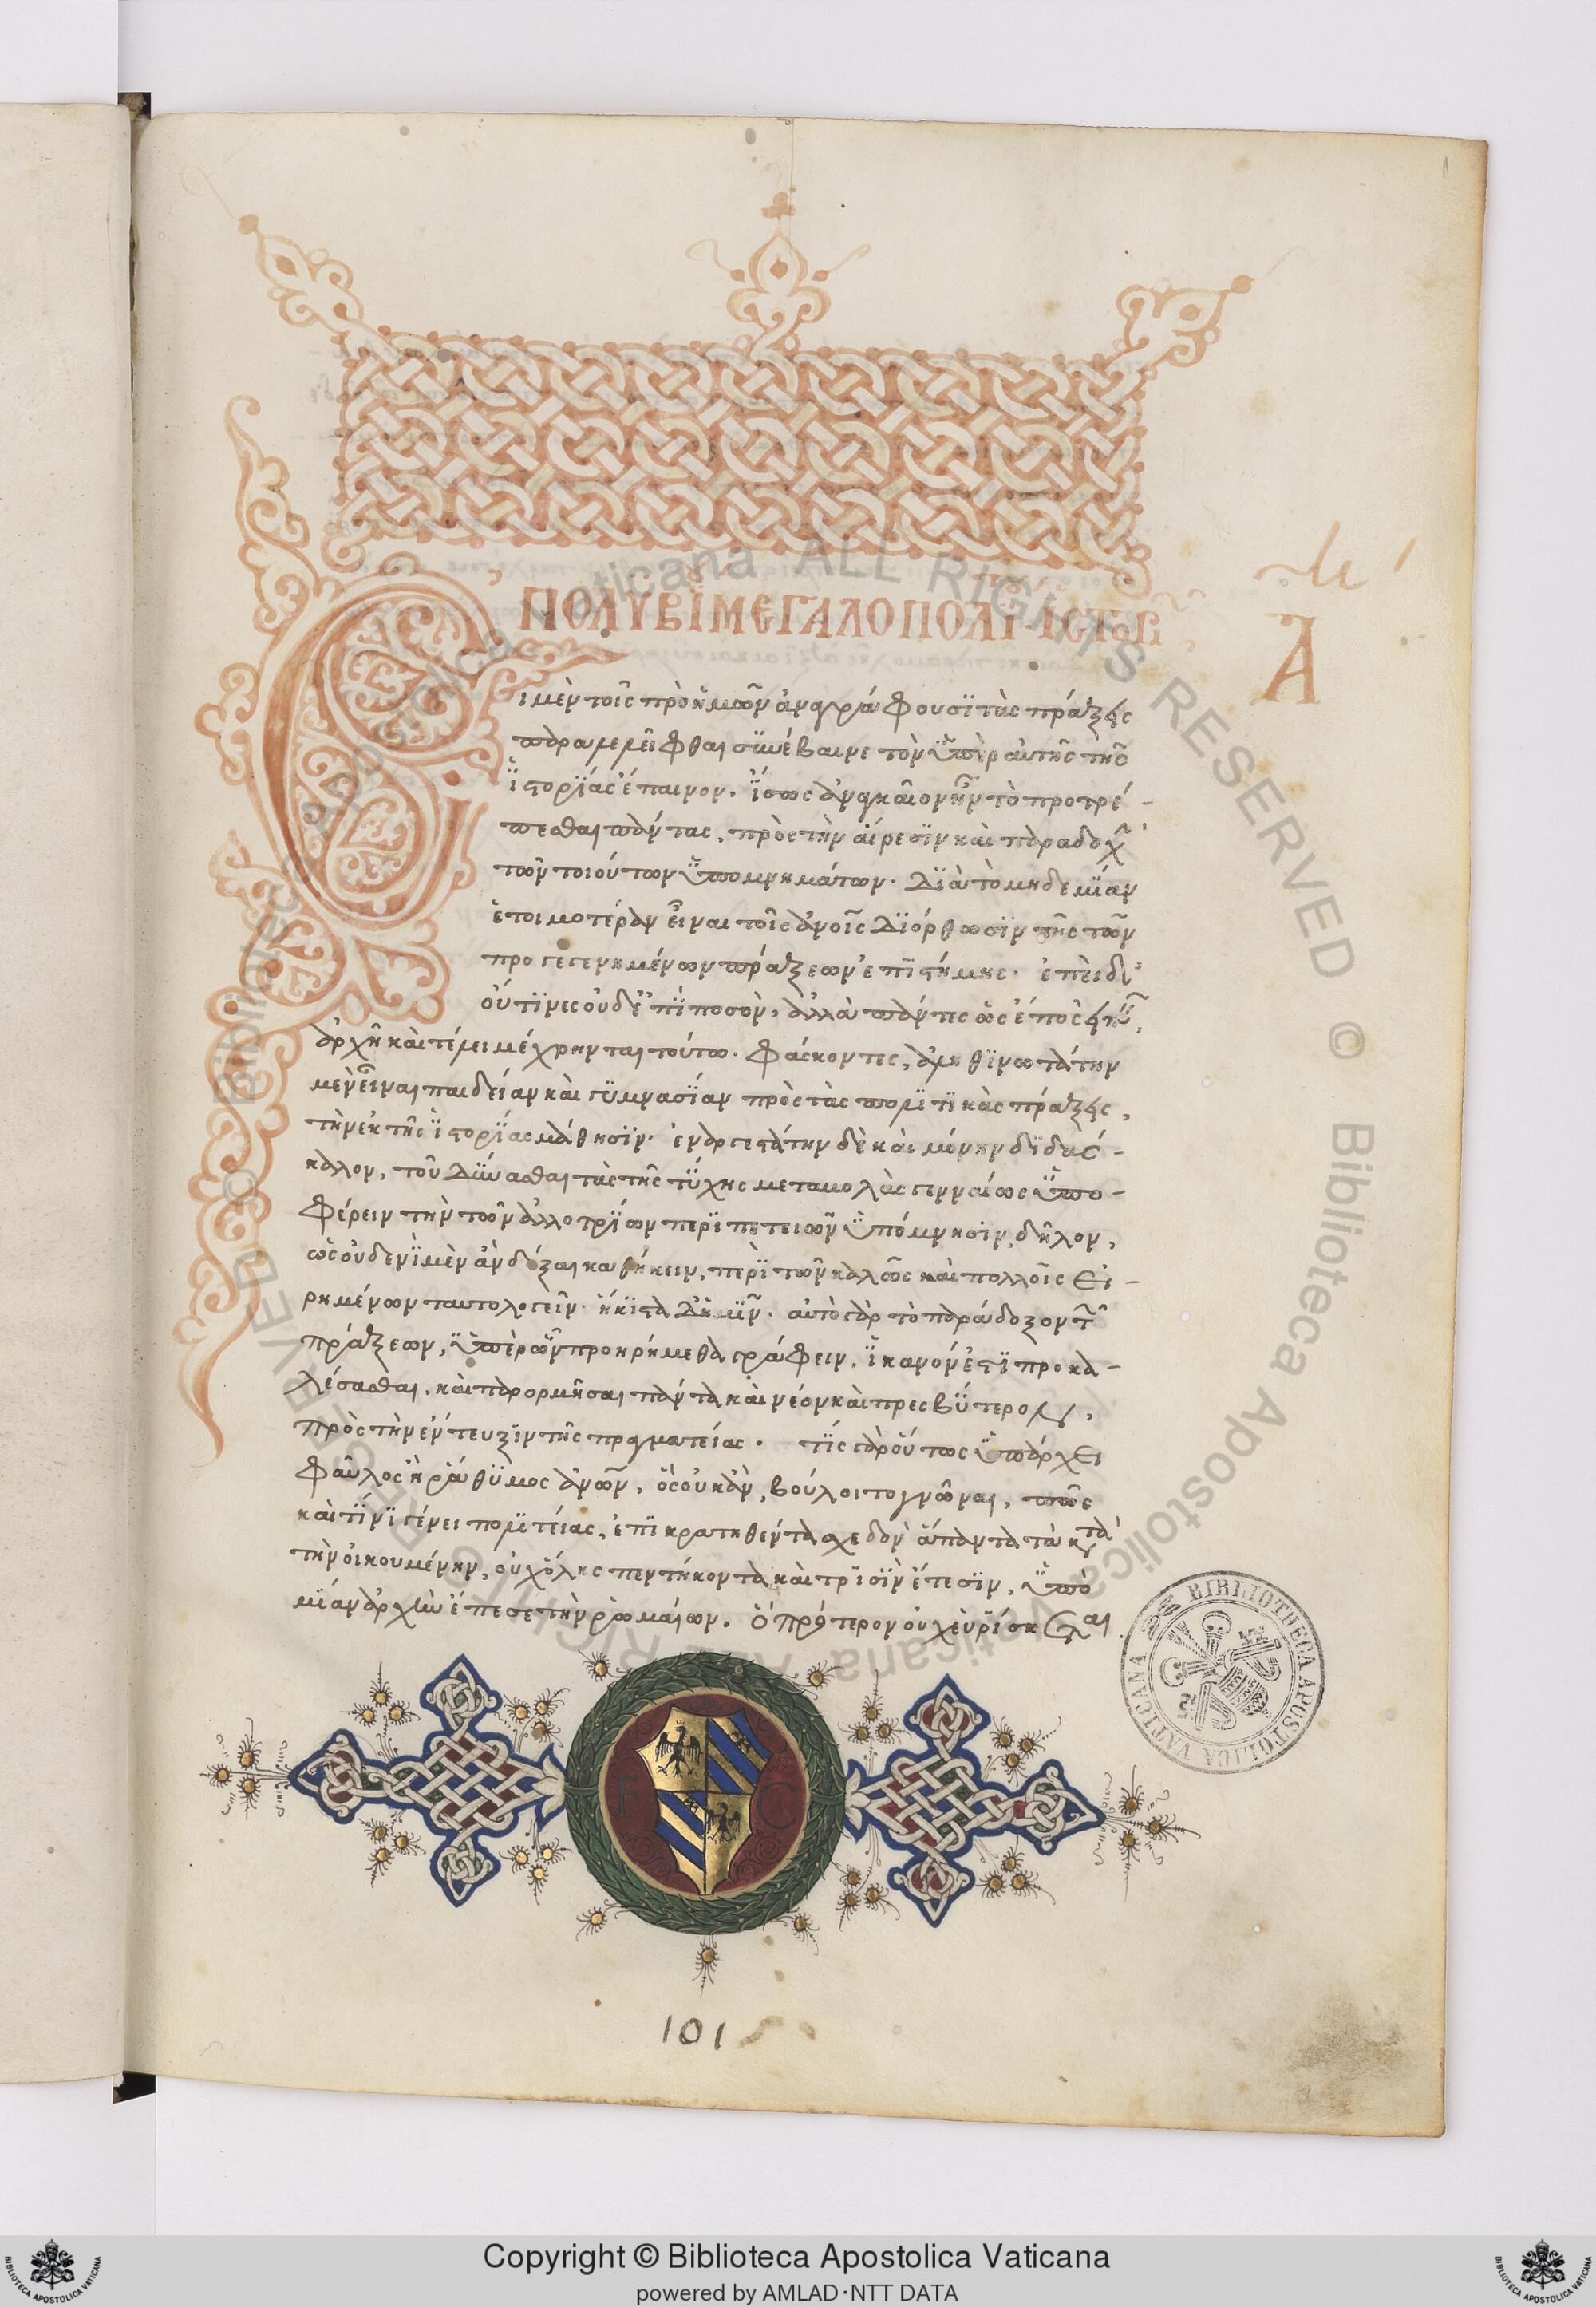 ΠΟΛΥΒΙΜΕΓΑΛΟΠΟΛΙ ΙΣΤΟΡΙ
Α
Εἰ μὲν τοῖς πρὸ ἡμῶν ἀναγράφουσϊ τὰς πράξεις
παραλελεῖφθαι σϋνέβαινε τὸν ϋπὲρ αὐτῆς τῆς
ϊστορϊας ἔπαινον. ϊσως ἀναγκαῖον ἦν τὸ προτρέ-
πεσθαι πάντας, πρὸς τὴν αἵρεσϊν καὶ παραδοχὴν
τῶν τοιούτων ϋπομνημάτων. Δϊὰ τὸ μηδεμϊαν
ἑτοιμοτέραν εἶναι τοῖς ἀνοις Δϊόρθωσϊν τῆς τῶν
προγεγενημένων πράξεων ἐπϊστήμης. ἐπεὶ δὲ
οὔ τϊνες οὐδ' ἐπϊ ποσὸν, ἀλλὰ πάντες ὡς ἔπος εἰπεῖν,
ἀρχῆ καὶ τέλει κέχρηνται τούτω. Φάσκοντες, ἀληθϊνωτάτην
μὲν εἶναι παιδείαν καὶ γϋμνασϊαν πρὸς τὰς πολϊτϊκὰς πράξεις,
τὴν ἐκ τῆς ϊστορϊας μάθησϊν. ἐναργεστάτην δὲ καὶ μόνην δϊδάσ-
καλον, τοῦ Δϋνασθαι τὰς τῆς τϋχης μεταβολὰς γενναίως ϋπο-
φέρειν τὴν τῶν ἀλλοτρϊων περϊπετειῶν ϋπόμνησϊν, δῆλον,
ὡς οὐδενϊ μὲν ἂν δόξαι καθήκειν, περϊ τῶν καλῶς καὶ πολλοῖς εἰ-
ρημένων ταυτολογεῖν. ἥκϊστα Δ' ἡμϊν. αὐτὸ γὰρ τὸ παράδοξον τῶν
πράξεων, ϋπὲρ ὧν προηρήμεθα γράφειν, ϊκανόν ἐστϊ προκα-
λέσασθαι. καὶ παρορμῆσαι πάντα καὶ νέον καὶ πρεσβϋτερον,
πρὸς τὴν ἔντευξϊν τῆς πραγματείας. τϊς γὰρ οὕτως ϋπάρχει
Φαῦλος ἢ ράθϋμος ἀνων, ὃς οὐκ ἂν, βούλοιτο γνῶναι, πῶς
καὶ τϊνϊ γένει πολϊτείας, ἐπϊκρατηθέντα σχεδὸν ἅπαντα τὰ κατὰ
τὴν οἰκουμένην, οὐχ ὅλης πεντήκοντα καὶ τρϊσϊν ἔτεσϊν, ϋπὸ
μϊαν ἀρχὴν ἔπεσε τὴν ρωμαίων. ὃ πρότερον οὐχ εὑρϊσκεται
F C
BIBLIOTECA APOSTOLICA VATICANA
101
Biblioteca Apostolica Vaticana ALL RIGHTS RESERVED © Biblioteca Apostolica Vaticana ALL RIGHTS RESERVED ©
Copyright © Biblioteca Apostolica Vaticana
powered by AMLAD・NTT DATA